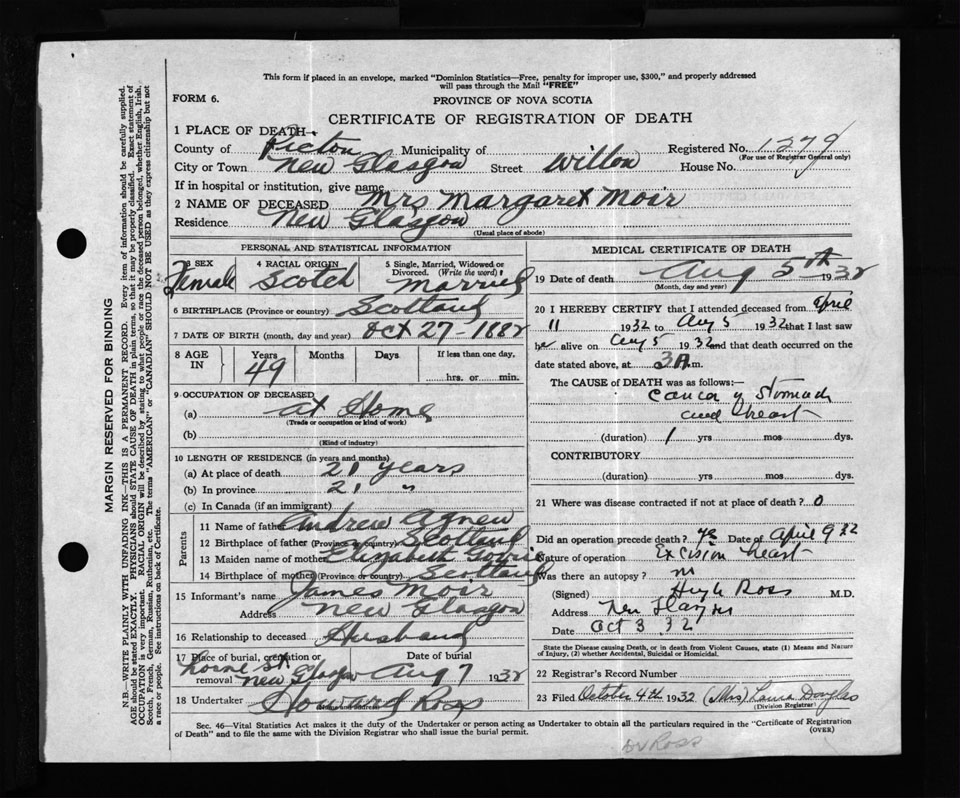 This form if placed in an envelope, marked "Dominion Statistics—Free, penalty for improper use, $300," and properly addressed
will pass through the Mail "FREE"
FORM 6.
PROVINCE OF NOVA SCOTIA
CERTIFICATE OF REGISTRATION OF DEATH
1 PLACE OF DEATH—
County of Pictou Municipality of Registered No. 1279
(For use of Registrar General only)
City or Town New Glasgow Street Willow House No.
If in hospital or institution, give name
2 NAME OF DECEASED Mrs Margaret Moir
Residence New Glasgow
(Usual place of abode)
PERSONAL AND STATISTICAL INFORMATION
3 SEX Female
4 RACIAL ORIGIN Scotch
5 Single, Married, Widowed or
Divorced. (Write the word) Married
6 BIRTHPLACE (Province or country) Scotland
7 DATE OF BIRTH (month, day and year) Oct 27-1882
8 AGE IN Years 49 Months Days If less than one day,
hrs. or min.
9 OCCUPATION OF DECEASED
(a) at Home
(Trade or occupation or kind of work)
(b)
(Kind of industry)
10 LENGTH OF RESIDENCE (in years and months)
(a) At place of death 21 years
(b) In province 21 "
(c) In Canada (if an immigrant)
Parents
11 Name of father Andrew Agnew
12 Birthplace of father (Province or country) Scotland
13 Maiden name of mother Elizabeth
14 Birthplace of mother (Province or country) Scotland
15 Informant's name James Moir
Address New Glasgow
16 Relationship to deceased Husband
17 Place of burial, cremation or
removal Lorne St. New Glasgow
Date of burial
Aug 7 1932
18 Undertaker Howard Ross
MEDICAL CERTIFICATE OF DEATH
19 Date of death Aug 5th 1932
(Month, day and year)
20 I HEREBY CERTIFY that I attended deceased from April
11 1932 to Aug 5 1932 that I last saw
her alive on Aug 5 1932 and that death occurred on the
date stated above, at 3 A.m.
The CAUSE OF DEATH was as follows:—
Cancer of Stomach
and breast
(duration) 1 yrs mos dys.
CONTRIBUTORY
(duration) yrs mos dys.
21 Where was disease contracted if not at place of death? 0
Did an operation precede death? yes Date of April 9 32
Nature of operation Excision breast
Was there an autopsy? no
(Signed) Hugh Ross M.D.
Address New Glasgow
Date Oct 3 32
State the Disease causing Death, or in death from Violent Causes, state (1) Means and Nature
of Injury, (2) whether Accidental, Suicidal or Homicidal.
22 Registrar's Record Number
23 Filed October 4th 1932 (Mrs) Laura Douglas
(Division Registrar)
Sec. 46—Vital Statistics Act makes it the duty of the Undertaker or person acting as Undertaker to obtain all the particulars required in the "Certificate of Registration
of Death" and to file the same with the Division Registrar who shall issue the burial permit.
(OVER)
Dr Ross
MARGIN RESERVED FOR BINDING
N.B—WRITE PLAINLY WITH UNFADING INK—THIS IS A PERMANENT RECORD. Every item of information should be carefully supplied.
AGE should be stated EXACTLY. PHYSICIANS should STATE CAUSE OF DEATH in plain terms, so that it may be properly classified. Exact statement of
OCCUPATION is very important. RACIAL ORIGIN will be described by stating to what people or race the deceased person belonged, whether English, Irish,
Scotch, French, German, Russian, Ruthenian, etc. The terms "AMERICAN" or "CANADIAN" SHOULD NOT BE USED as they express citizenship but not
a race or people. See instructions on back of Certificate.